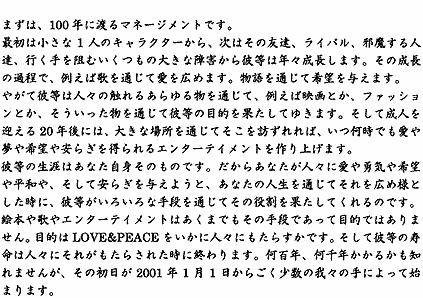 まずは、100年に渡るマネージメントです。
最初は小さな1人のキャラクターから、次はその友達、ライバル、邪魔する人
達、行く手を阻むいくつもの大きな障害から彼等は年々成長します。その成長
の過程で、例えば歌を通じて愛を広めます。物語を通じて希望を与えます。
やがて彼等は人々の触れるあらゆる物を通じて、例えば映画とか、ファッショ
ンとか、そういった物を通じて彼等の目的を果たしてゆきます。そして成人を
迎える20年後には、大きな場所を通じてそこを訪ずれれば、いつ何時でも愛や
夢や希望や安らぎを得られるエンターテイメントを作り上げます。
彼等の生涯はあなた自身そのものです。だからあなたが人々に愛や勇気や希望
や平和や、そして安らぎを与えようと、あなたの人生を通じてそれを広め様と
した時に、彼等がいろいろな手段を通じてその役割を果たしてくれるのです。
絵本や歌やエンターテイメントはあくまでもその手段であって目的ではありま
せん。目的はLOVE&PEACEをいかに人々にもたらすかです。そして彼等の寿
命は人々にそれがもたらされた時に終わります。何百年、何千年かかるかも知
れませんが、その初日が2001年1月1日からごく少数の我々の手によって始
まります。